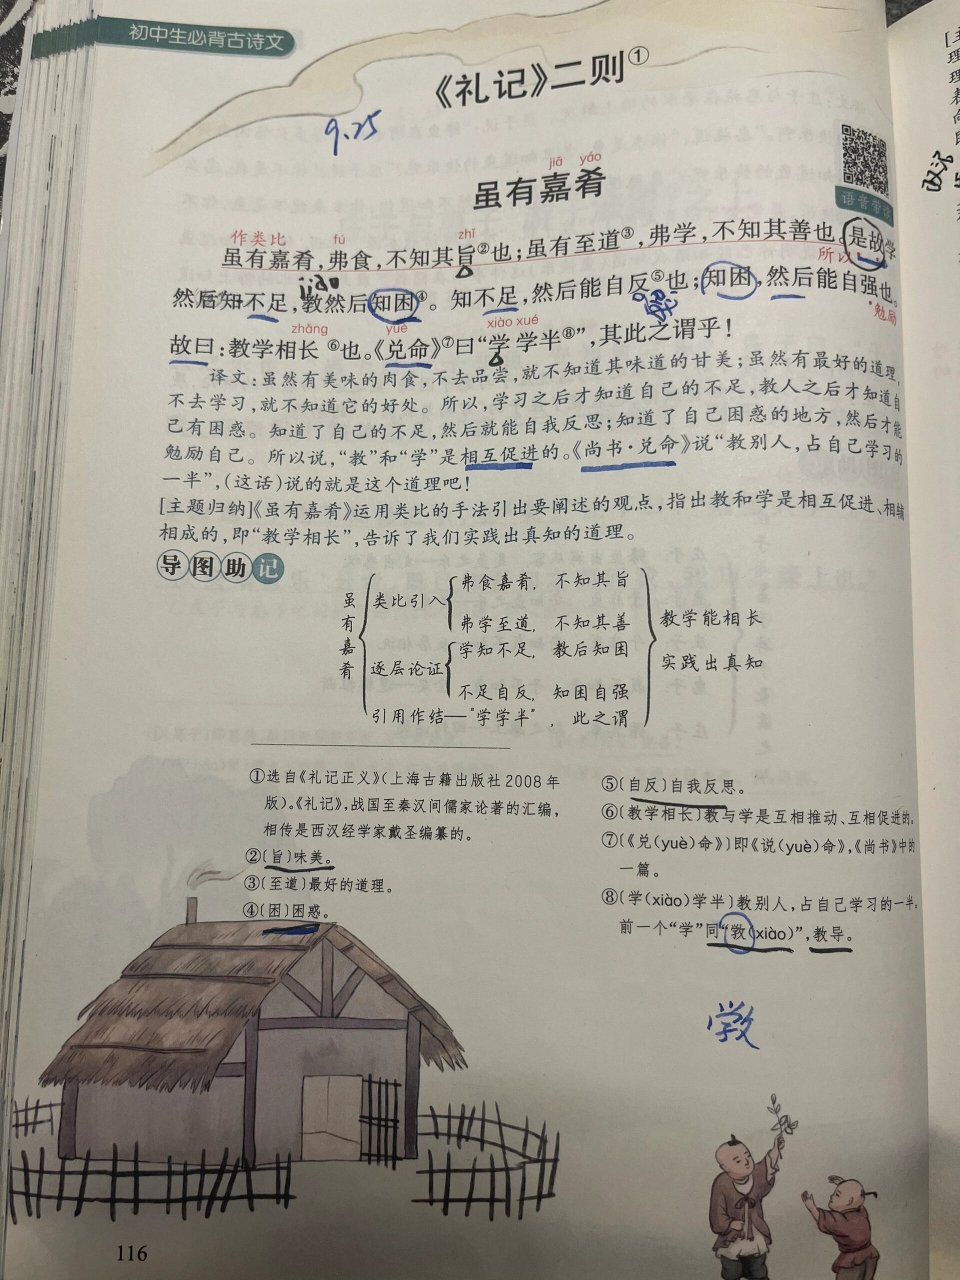 初中生必背古诗文
《礼记》二则①
9.25
jiā yáo
虽有嘉肴
语音带读
作类比 fú zhǐ
虽有嘉肴，弗食，不知其旨②也；虽有至道③，弗学，不知其善也。是故学
所以
jiào
然后知不足，教然后知困④。知不足，然后能自反⑤也；知困，然后能自强也。
勉励
zhǎng yuè xiào xué
故曰：教学相长⑥也。《兑命》⑦曰“学学半⑧”，其此之谓乎！
译文：虽然有美味的肉食，不去品尝，就不知道其味道的甘美；虽然有最好的道理，
不去学习，就不知道它的好处。所以，学习之后才知道自己的不足，教人之后才知道自
己有困惑。知道了自己的不足，然后就能自我反思；知道了自己困惑的地方，然后才能
勉励自己。所以说，“教”和“学”是相互促进的。《尚书·兑命》说“教别人，占自己学习的
一半”，（这话）说的就是这个道理吧！
[主题归纳]《虽有嘉肴》运用类比的手法引出要阐述的观点，指出教和学是相互促进、相辅
相成的，即“教学相长”，告诉了我们实践出真知的道理。
导图助记
虽有嘉肴
类比引入
弗食嘉肴，不知其旨
弗学至道，不知其善
逐层论证
学知不足，教后知困
不足自反，知困自强
引用作结—“学学半”，此之谓
教学能相长
实践出真知
①选自《礼记正义》（上海古籍出版社2008年
版）。《礼记》，战国至秦汉间儒家论著的汇编，
相传是西汉经学家戴圣编纂的。
②〔旨〕味美。
③〔至道〕最好的道理。
④〔困〕困惑。
⑤〔自反〕自我反思。
⑥〔教学相长〕教与学是互相推动、互相促进的。
⑦〔《兑(yuè)命》〕即《说(yuè)命》，《尚书》中的
一篇。
⑧〔学(xiào)学半〕教别人，占自己学习的一半。
前一个“学”同“敩(xiào)”，教导。
敩
116